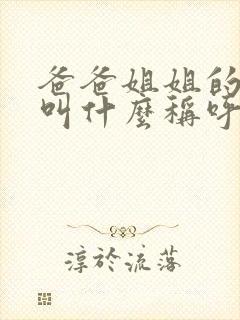 爸爸姐姐的
叫什麼稱呼
淳於流落